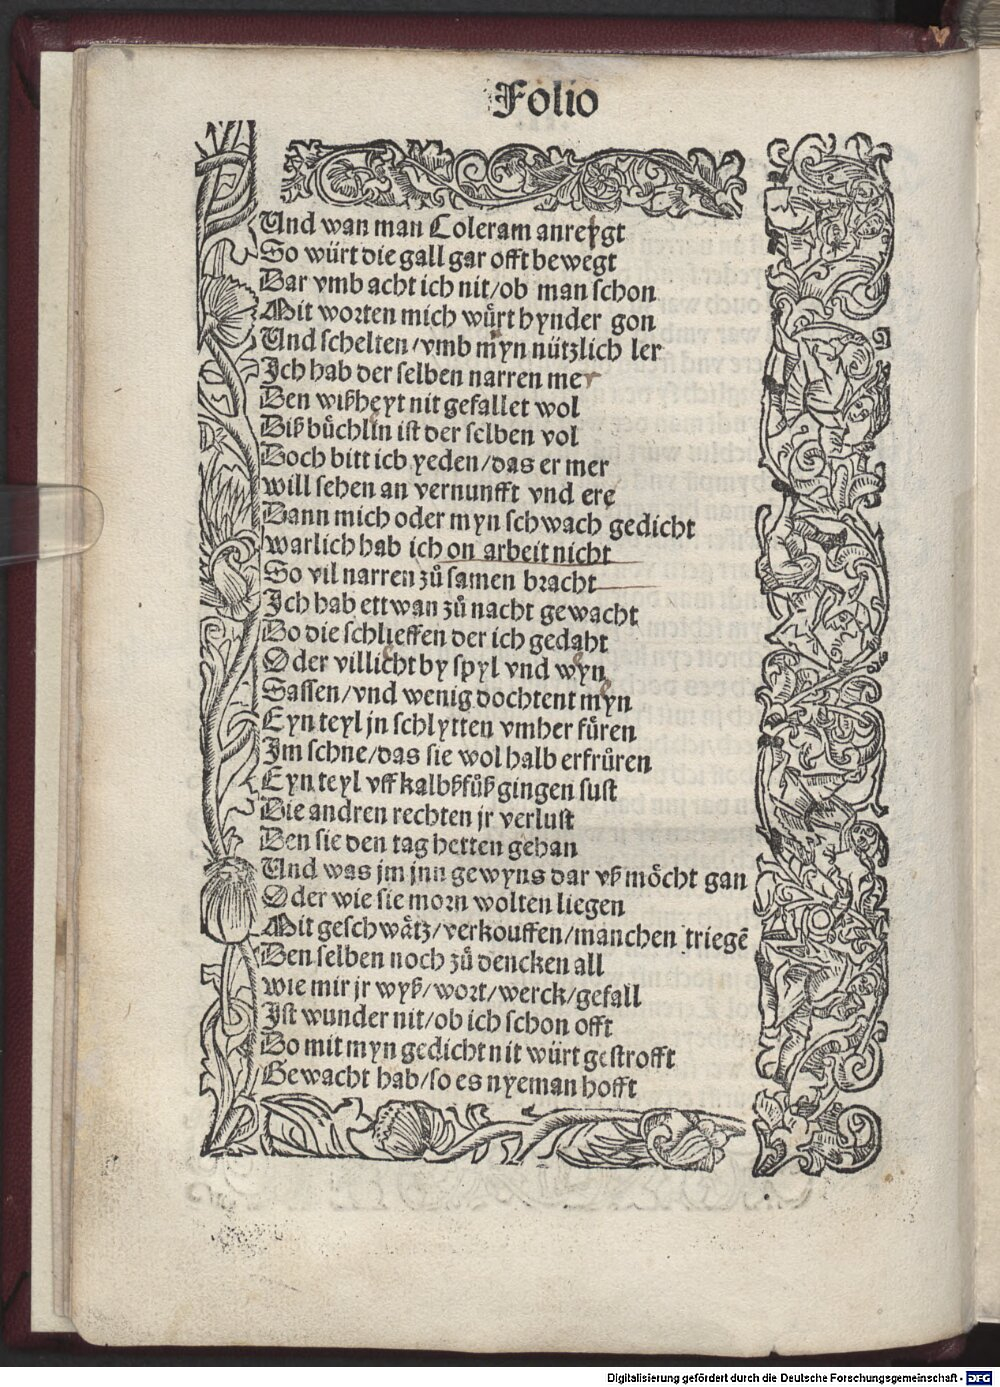 Folio
Und wan man Coleram anreygt
So würt die gall gar offt bewegt
Dar vmb acht ich nit/ob man schon
Mit worten mich würt hynder gon
Und schelten/vmb myn nützlich ler
Ich hab der selben narren mer
Den wißheyt nit gefallet wol
Diß bůchlin ist der selben vol
Doch bitt ich yeden/das er mer
will sehen an vernunfft vnd ere
Dann mich oder myn schwach gedicht
warlich hab ich on arbeit nicht
So vil narren zů samen bracht
Ich hab ettwan zů nacht gewacht
Do die schlieffen der ich gedaht
Oder villicht by spyl vnd wyn
Sassen/vnd wenig dochtent myn
Eyn teyl jn schlytten vmher fůren
Im schne/das sie wol halb erfrůren
Eyn teyl vff kalbßfůß gingen sust
Die andren rechten jr verlust
Den sie den tag hetten gehan
Und was jm jnn gewyns dar vß möcht gan
Oder wie sie morn wolten liegen
Mit geschwätz/verkouffen/manchen triegē
Den selben noch zů dencken all
wie mir jr wyß/wort/werck/gefall
Ist wunder nit/ob ich schon offt
Do mit myn gedicht nit würt gestrofft
Gewacht hab/so es nyeman hofft
Digitalisierung gefördert durch die Deutsche Forschungsgemeinschaft - DFG